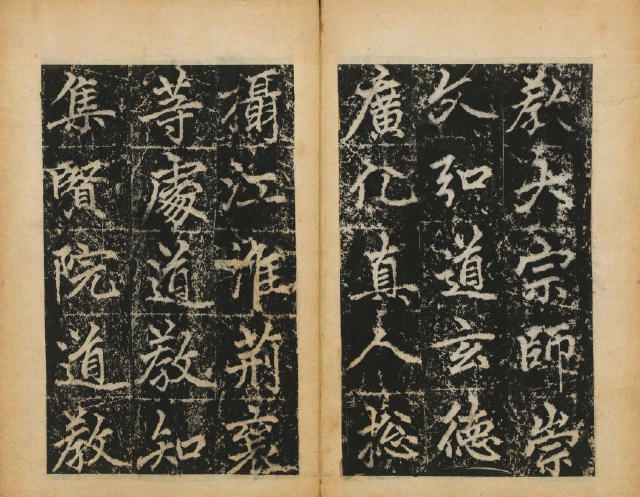 教大宗師崇
文弘道玄德
廣化真人㧾
攝江淮荊襄
等處道教知
集賢院道教